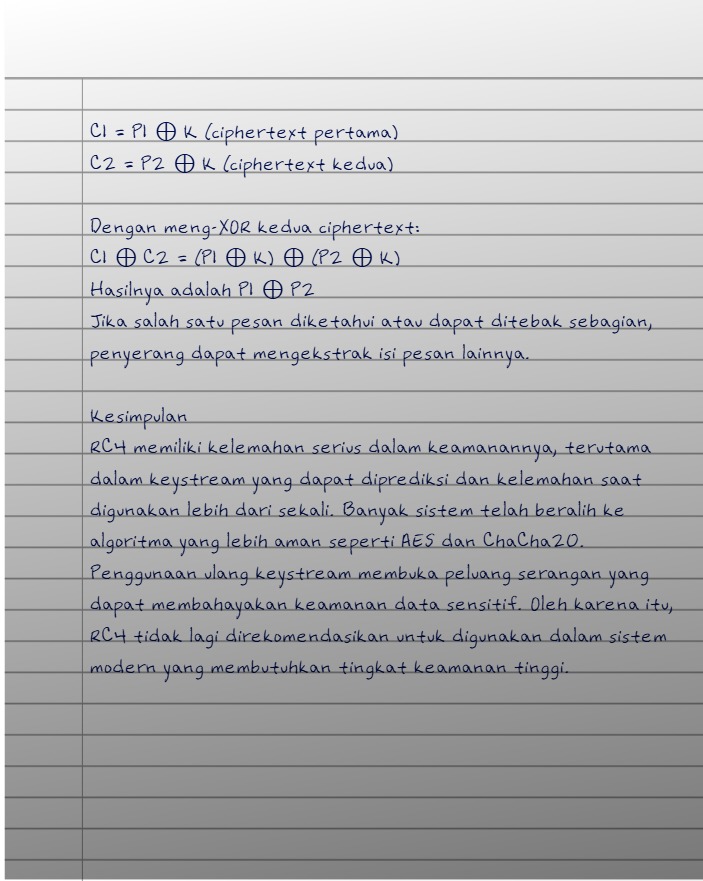 C1 = P1 ⊕ K (ciphertext pertama)
C2 = P2 ⊕ K (ciphertext kedua)
Dengan meng-XOR kedua ciphertext:
C1 ⊕ C2 = (P1 ⊕ K) ⊕ (P2 ⊕ K)
Hasilnya adalah P1 ⊕ P2
Jika salah satu pesan diketahui atau dapat ditebak sebagian,
penyerang dapat mengekstrak isi pesan lainnya.
Kesimpulan
RC4 memiliki kelemahan serius dalam keamanannya, terutama
dalam keystream yang dapat diprediksi dan kelemahan saat
digunakan lebih dari sekali. Banyak sistem telah beralih ke
algoritma yang lebih aman seperti AES dan ChaCha20.
Penggunaan ulang keystream membuka peluang serangan yang
dapat membahayakan keamanan data sensitif. Oleh karena itu,
RC4 tidak lagi direkomendasikan untuk digunakan dalam sistem
modern yang membutuhkan tingkat keamanan tinggi.